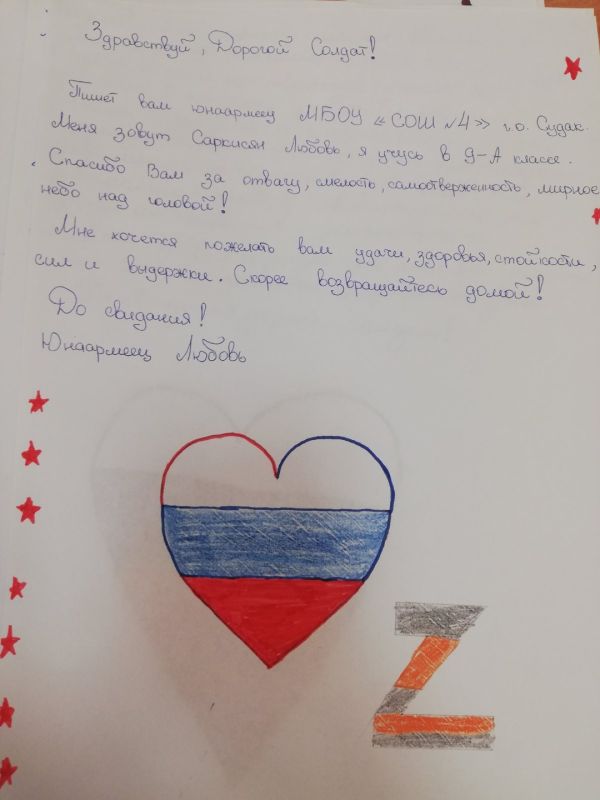 Здравствуй, Дорогой Солдат!
Пишет вам юнаармеец МБОУ «СОШ №4» г.о. Судак.
Меня зовут Саркисян Любовь, я учусь в 9-А классе.
Спасибо Вам за отвагу, смелость, самоотверженность, мирное
небо над головой!
Мне хочется пожелать вам удачи, здоровья, стойкости,
сил и выдержки. Скорее возвращайтесь домой!
До свидания!
Юнаармеец Любовь
Z